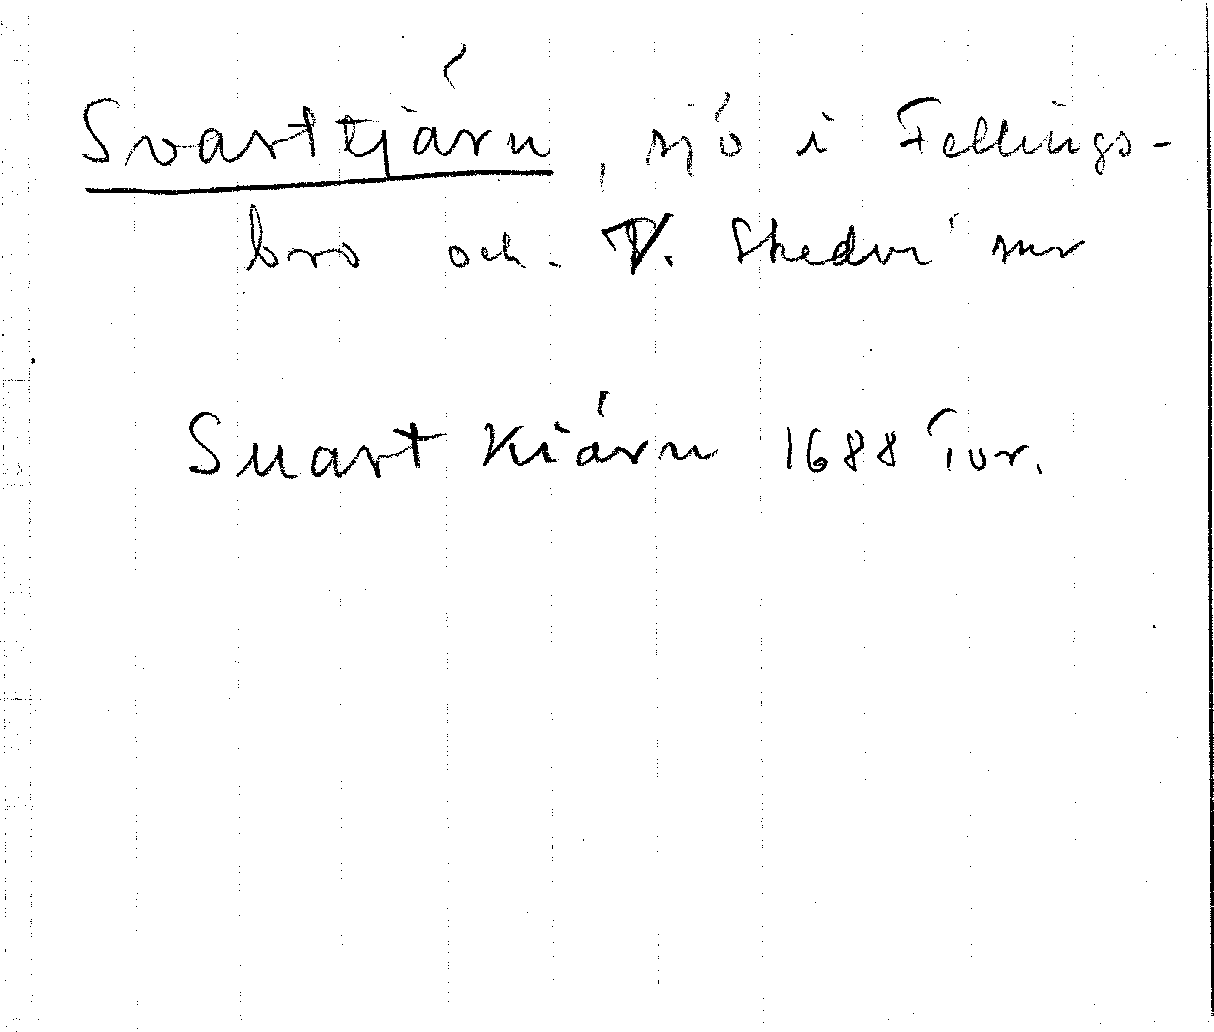 Svarttjärn, sjö i Fellings-
bro och V. Skedvi snr
Suart Kiärn 1688 Jor.